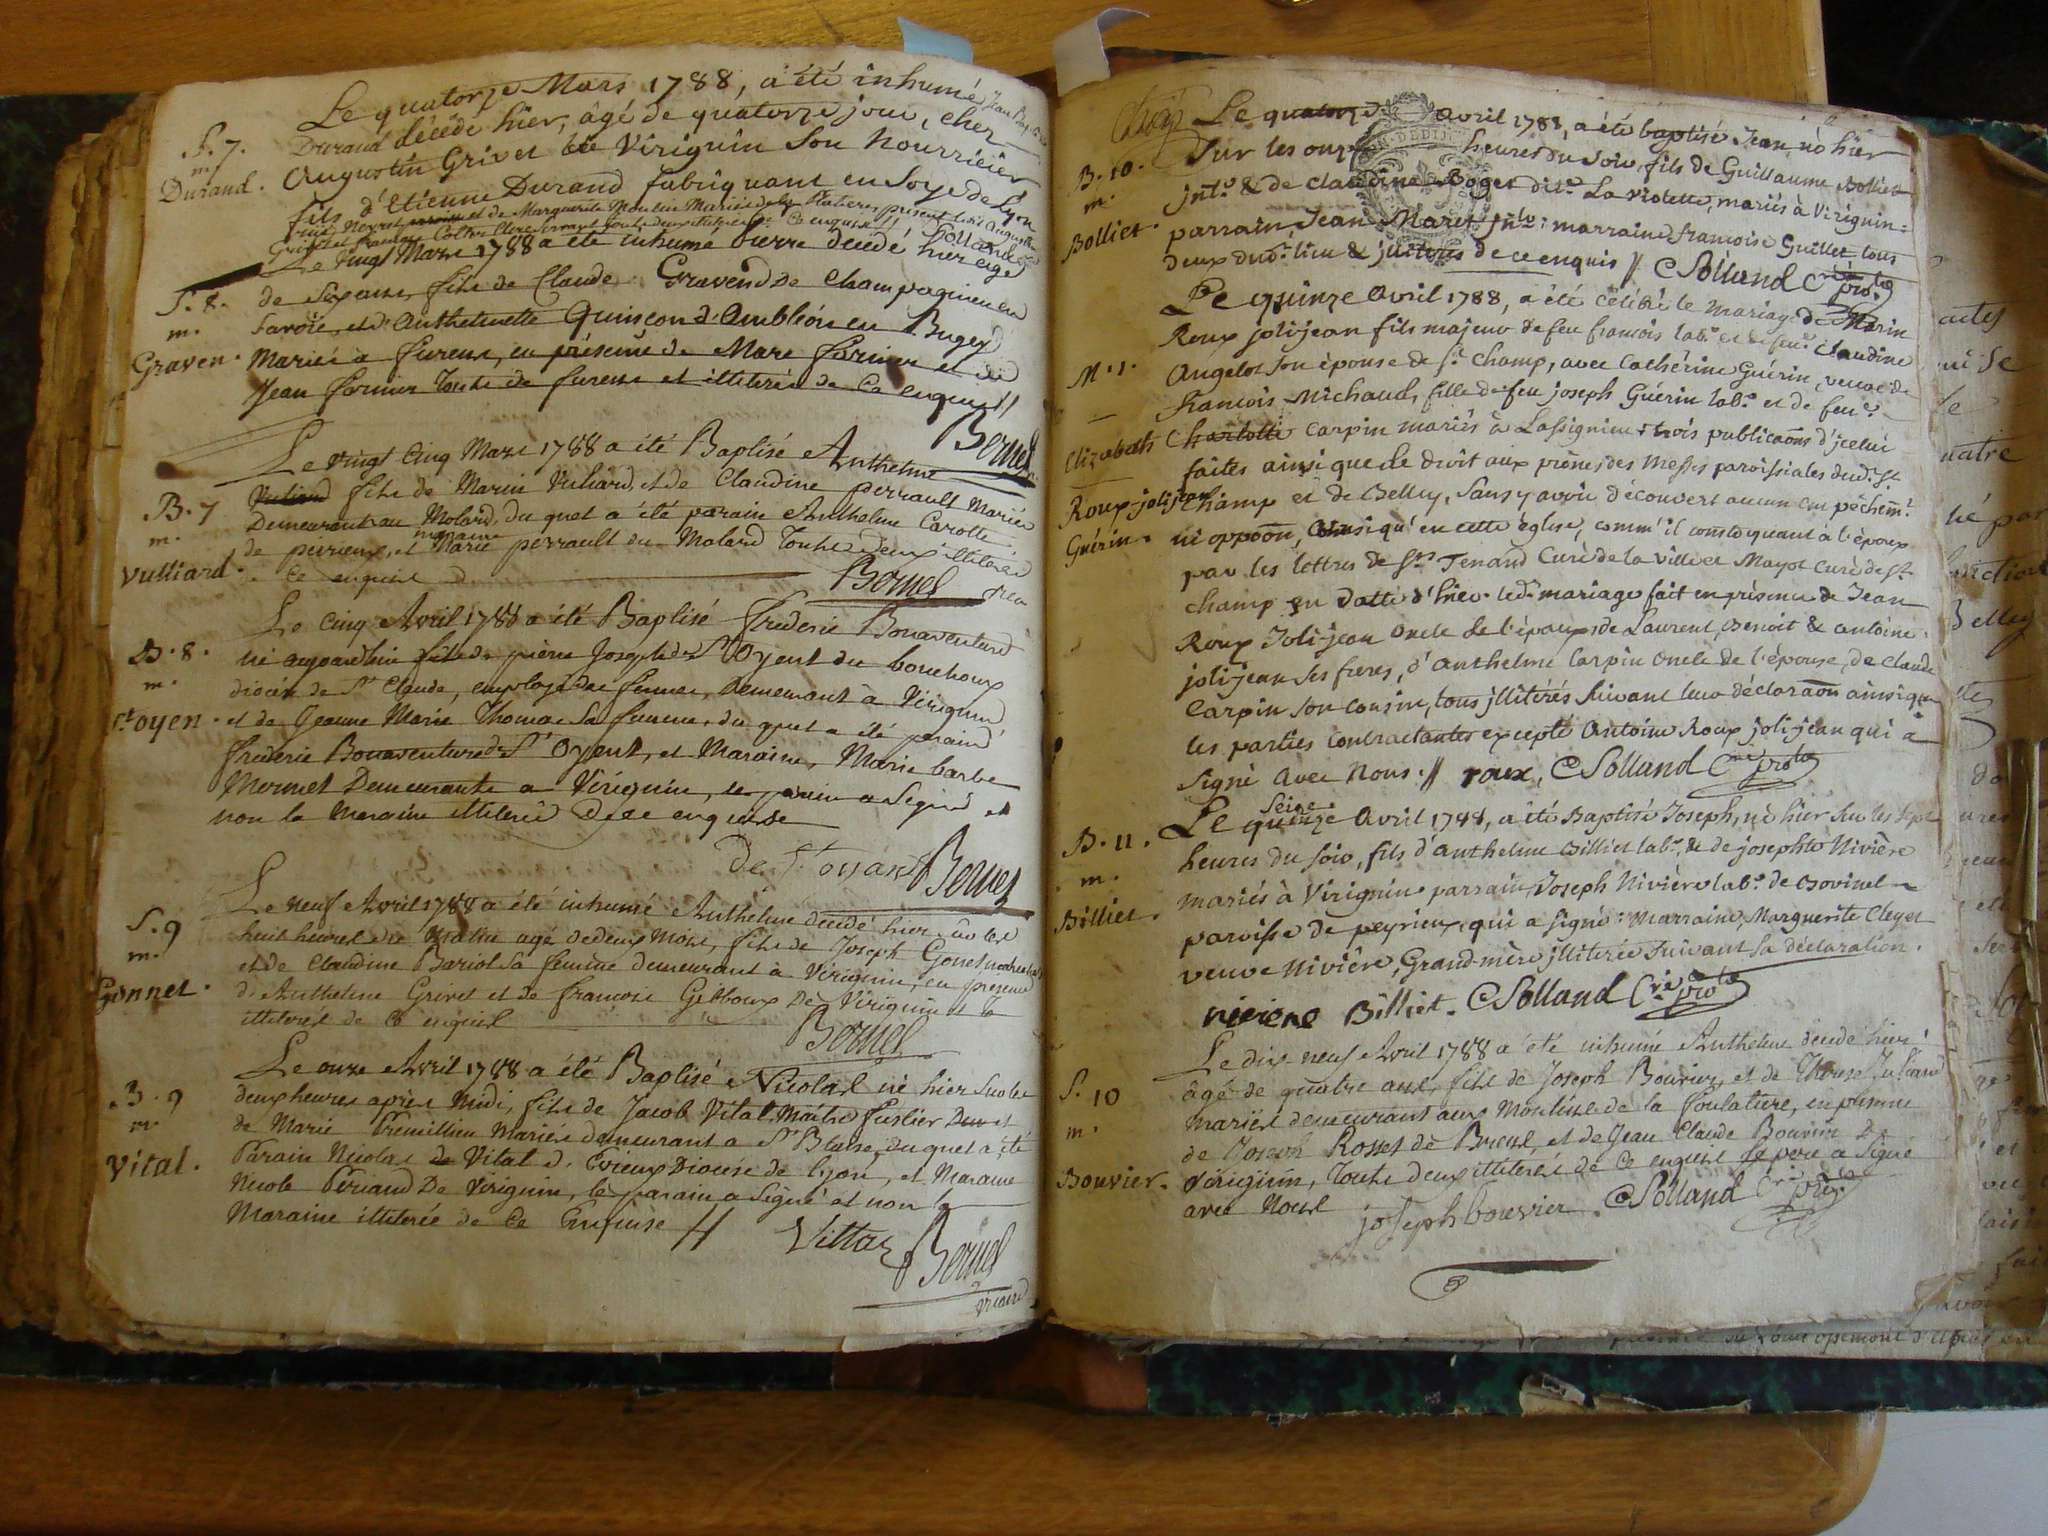 Le quatorze Mars 1788, a été inhumé Jean
S. 7. Durand décédé hier, âgé de quatorze jour, chez
m. Augustin Grivet de Virignin son Nourricier
Durand. fils d'Etienne Durand fabriquant en Soye de Lyon
et de Marguerite Moulin Mariés
Solland
Le vingt Mars 1788 a été inhumé pierre décédé hier agé
S. 8. de six ans, fils de Claude Gravend De Champagnieu en
m. Savoie, et d'Anthelmette Quinson d'Ambléon en Bugey
Graven. Mariés a fureur, en présence de Marc fornier et de
Jean fornier touts de et illiterés de ce enquis //
Bornet
Le vingt Cinq Mars 1788 a été Baptisé Anthelme
B. 7 fils de Marin Vulliard, et de Claudine perrault Mariés
m. Demeurant au Molard, du quel a été parain Anthelme Carotte
maraine
de peirieux, et Marie perrault du Molard touts deux illiterés
Vulliard. ce enquis
Bornet
Le Cinq Avril 1788 a été Baptisé frederic Bonaventure
B. 8. né aujourdhui fils de pierre Joseph de St Oyent du bouchoux
m. diocese de St Claude, employé des fermes, Demeurant à Virignin
St oyen. et de Jeanne Marie Thomas sa femme, du quel a été parain
frederic Bonaventure de St Oyent, et Maraine, Marie barbe
Mermet Demeurante a Virignin, le parain a Signé et
non la Maraine illiterée de ce enquise
De St oyant Bornet
Le neuf Avril 1788 a été inhumé Anthelme décédé hier
S. 9 huit heures du Matin agé de deux Mois, fils de Joseph Gonet
m. et de Claudine Bariot sa femme demeurant à Virignin, en presence
Gonnet. d'Anthelme Grivet et de françois Gelloux De Virignin
illiterés de ce enquis
Bornet
Le onze Avril 1788 a été Baptisé Nicolas né hier sur les
B. 9 deux heures après Midi, fils de Jacob Vital Maître fustier et
m. de Marie Tremillieu Mariés demeurant a St Blaise, du quel a été
Vital. Parain Nicolas de Vital d. Evieux Diocése de Lyon, et Maraine
Nicole Periand De Virignin, le parain a Signé et non la
Maraine illiterée de ce Enquise //
Vittaz Bornet
Vicaire
Le quatorze Avril 1788, a été baptisé Jean, né hier
B. 10. Sur les onze heures du Soir, fils de Guillaume Bolliet
m. & de Claudine Roget dite La Violette, mariés à Virignin:
Bolliet. parrain, Jean Maret; marraine, françoise Guillet tous
deux dud. lieu & jllitérés de ce enquis // CSolland
Le quinze Avril 1788, a été célébré le mariage de Marin
Roux jolijean fils majeur de feu françois lab.r et de feue Claudine
M. 1. Angelot son épouse de St. Champ, avec Cathérine Guérin, veuve de
françois Michaud, fille de feu joseph Guérin lab.r et de feue
Elizabeth Charlotte Carpin mariés à Lassignieu trois publicaons d'jcelui
faites ainsi que de droit aux prônes des Messes paroissiales dud. St.
Roux-jolijean Champ et de Belley, Sans y avoir découvert aucun empêchemt.
Guérin. ni oppoon, ainsi qu'en cette église, comm' il conste quant à l'époux
par les lettres de Srs Tenand Curé de la Ville et Mayot Curé de St.
Champ en datte d'hier. led. mariage fait en présence de Jean
Roux Jolijean oncle de l'époux, de Laurent, Benoit & antoine
jolijean ses freres, d'anthelme Carpin oncle de l'épouse, de Claude
Carpin son cousin, tous jllitérés suivant leur déclaraon ainsi que
les parties contractantes excepté Antoine Roux jolijean qui a
signé avec Nous. // roux, CSolland
Seize
Le quinze Avril 1788, a été Baptisé Joseph, né hier sur les sept
B. 11. heures du soir, fils d'anthelme Billiet lab.r & de josephte Nivière
m. mariés à Virignin: parrain, Joseph Nivière lab.r de Bovinel
Billiet. paroisse de peyrieu, qui a signé: Marraine, Marguerite Cleyet
veuve Nivière, Grand-mère jllitérée suivant sa déclaration.
niviere Billiet. CSolland
Le dix neuf Avril 1788 a été inhumé Anthelme décédé hier
S. 10 âgé de quatre ans, fils de Joseph Bouvier, et de Therese Juliand
m. mariés demeurant aux Moulins de la foulature, en présence
de Joseph Rosset de Brens, et de Jean Claude Bouvier De
Bouvier. Virignin, touts deux illiterés de ce enquis le pere a signé
avec Nous
joseph bouvier. CSolland